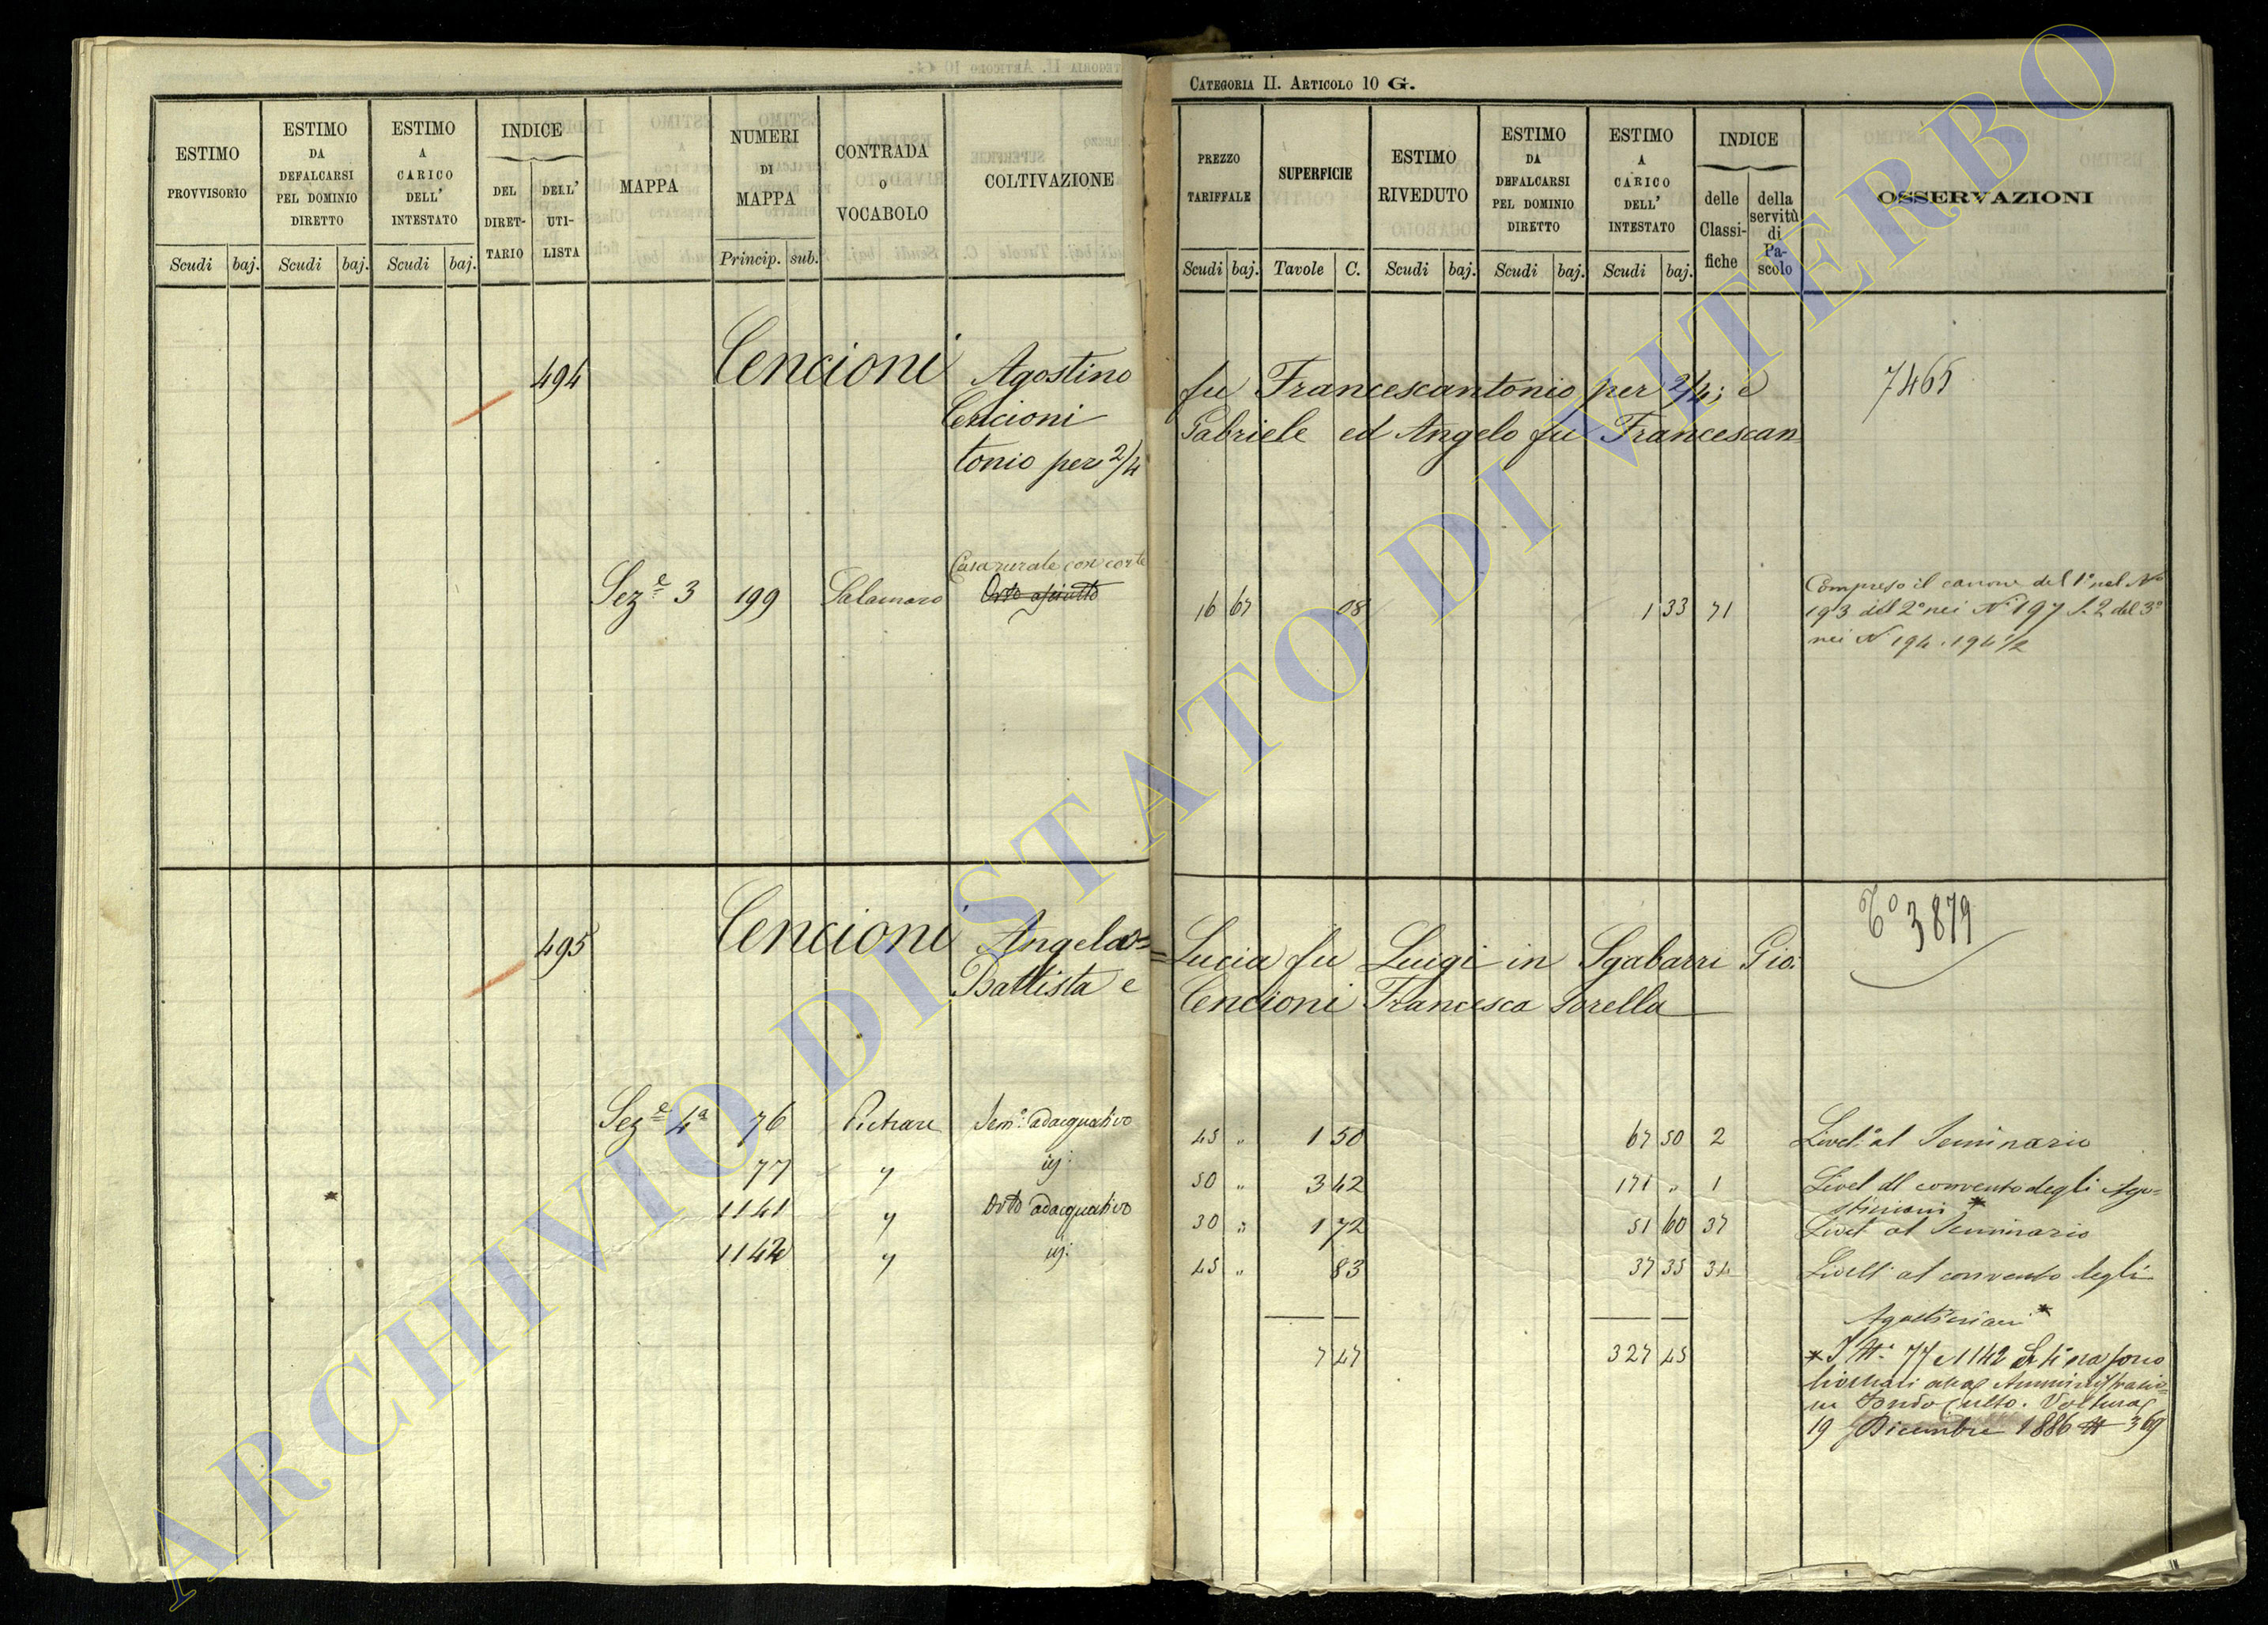 CATEGORIA II. ARTICOLO 10 G.
ESTIMO PROVVISORIO
ESTIMO DA DEFALCARSI PEL DOMINIO DIRETTO
ESTIMO A CARICO DELL' INTESTATO
INDICE
DEL DIRET-TARIO
DELL' UTI-LISTA
MAPPA
NUMERI DI MAPPA
CONTRADA O VOCABOLO
COLTIVAZIONE
Scudi baj. Scudi baj. Scudi baj. Princip. sub.
PREZZO TARIFFALE
SUPERFICIE
ESTIMO RIVEDUTO
ESTIMO DA DEFALCARSI PEL DOMINIO DIRETTO
ESTIMO A CARICO DELL' INTESTATO
INDICE
delle Classi-fiche
della servitù di Pa-scolo
OSSERVAZIONI
Scudi baj. Tavole C. Scudi baj. Scudi baj. Scudi baj.
494 Cencioni Agostino fu Francescantonio per 2/4; e 7465
Cencioni Gabriele ed Angelo fu Francescan
tonio per 2/4
Casa rurale con corte
Sez.e 3 199 Salamaro Orto asciutto 16 67 08 1 33 71
Compreso il canone del 1° nel No
193 del 2° nei N.i 197 s. 2 del 3°
nei N. 194. 194 1/2
495 Cencioni Angela= =Lucia fu Luigi in Sgabarri Gio: To 3879
Battista e Cencioni Francesca Sorella
Sez.e 4a 76 Pietrare Sem.o adacquativo 45 " 1 50 67 50 2 Livel.o al Seminario
77 " id: 50 " 3 42 171 " 1 Livel. al convento degli Ago=
stiniani *
1141 " Orto adacquativo 30 " 1 72 51 60 37 Livel. al Seminario
1142 " id: 45 " 83 37 35 34 Livell. al convento degli
Agostiniani *
7 47 327 45
* I N.i 77 e 1142 Sez. 4a ora sono
livellari alla Amministrazio=
ne Fondo Culto. Voltura
19 Dicembre 1886 N 369
ARCHIVIO DI STATO DI VITERBO